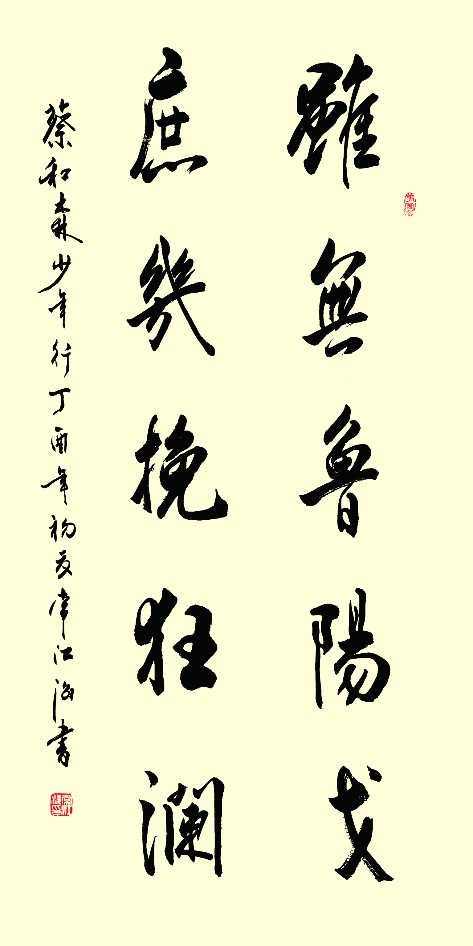 雖無魯陽戈
庶幾挽狂瀾
蔡和森少年行丁酉年初夏常江海書